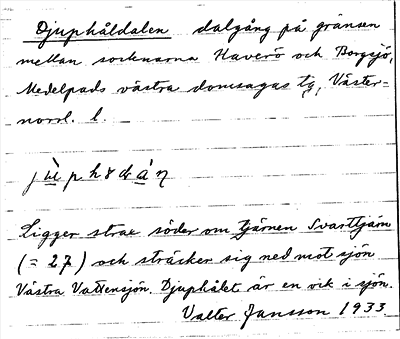 Djuphåldalen dalgång på gränsen
mellan socknarna Haverö och Borgsjö,
Medelpads västra domsagas tg, Väster-
norrl. l.
Ligger strax söder om tjärnen Svarttjärn
(= 27) och sträcker sig ned mot sjön
Västra Vattensjön. Djuphålet är en vik i sjön.
Valter Jansson 1933.